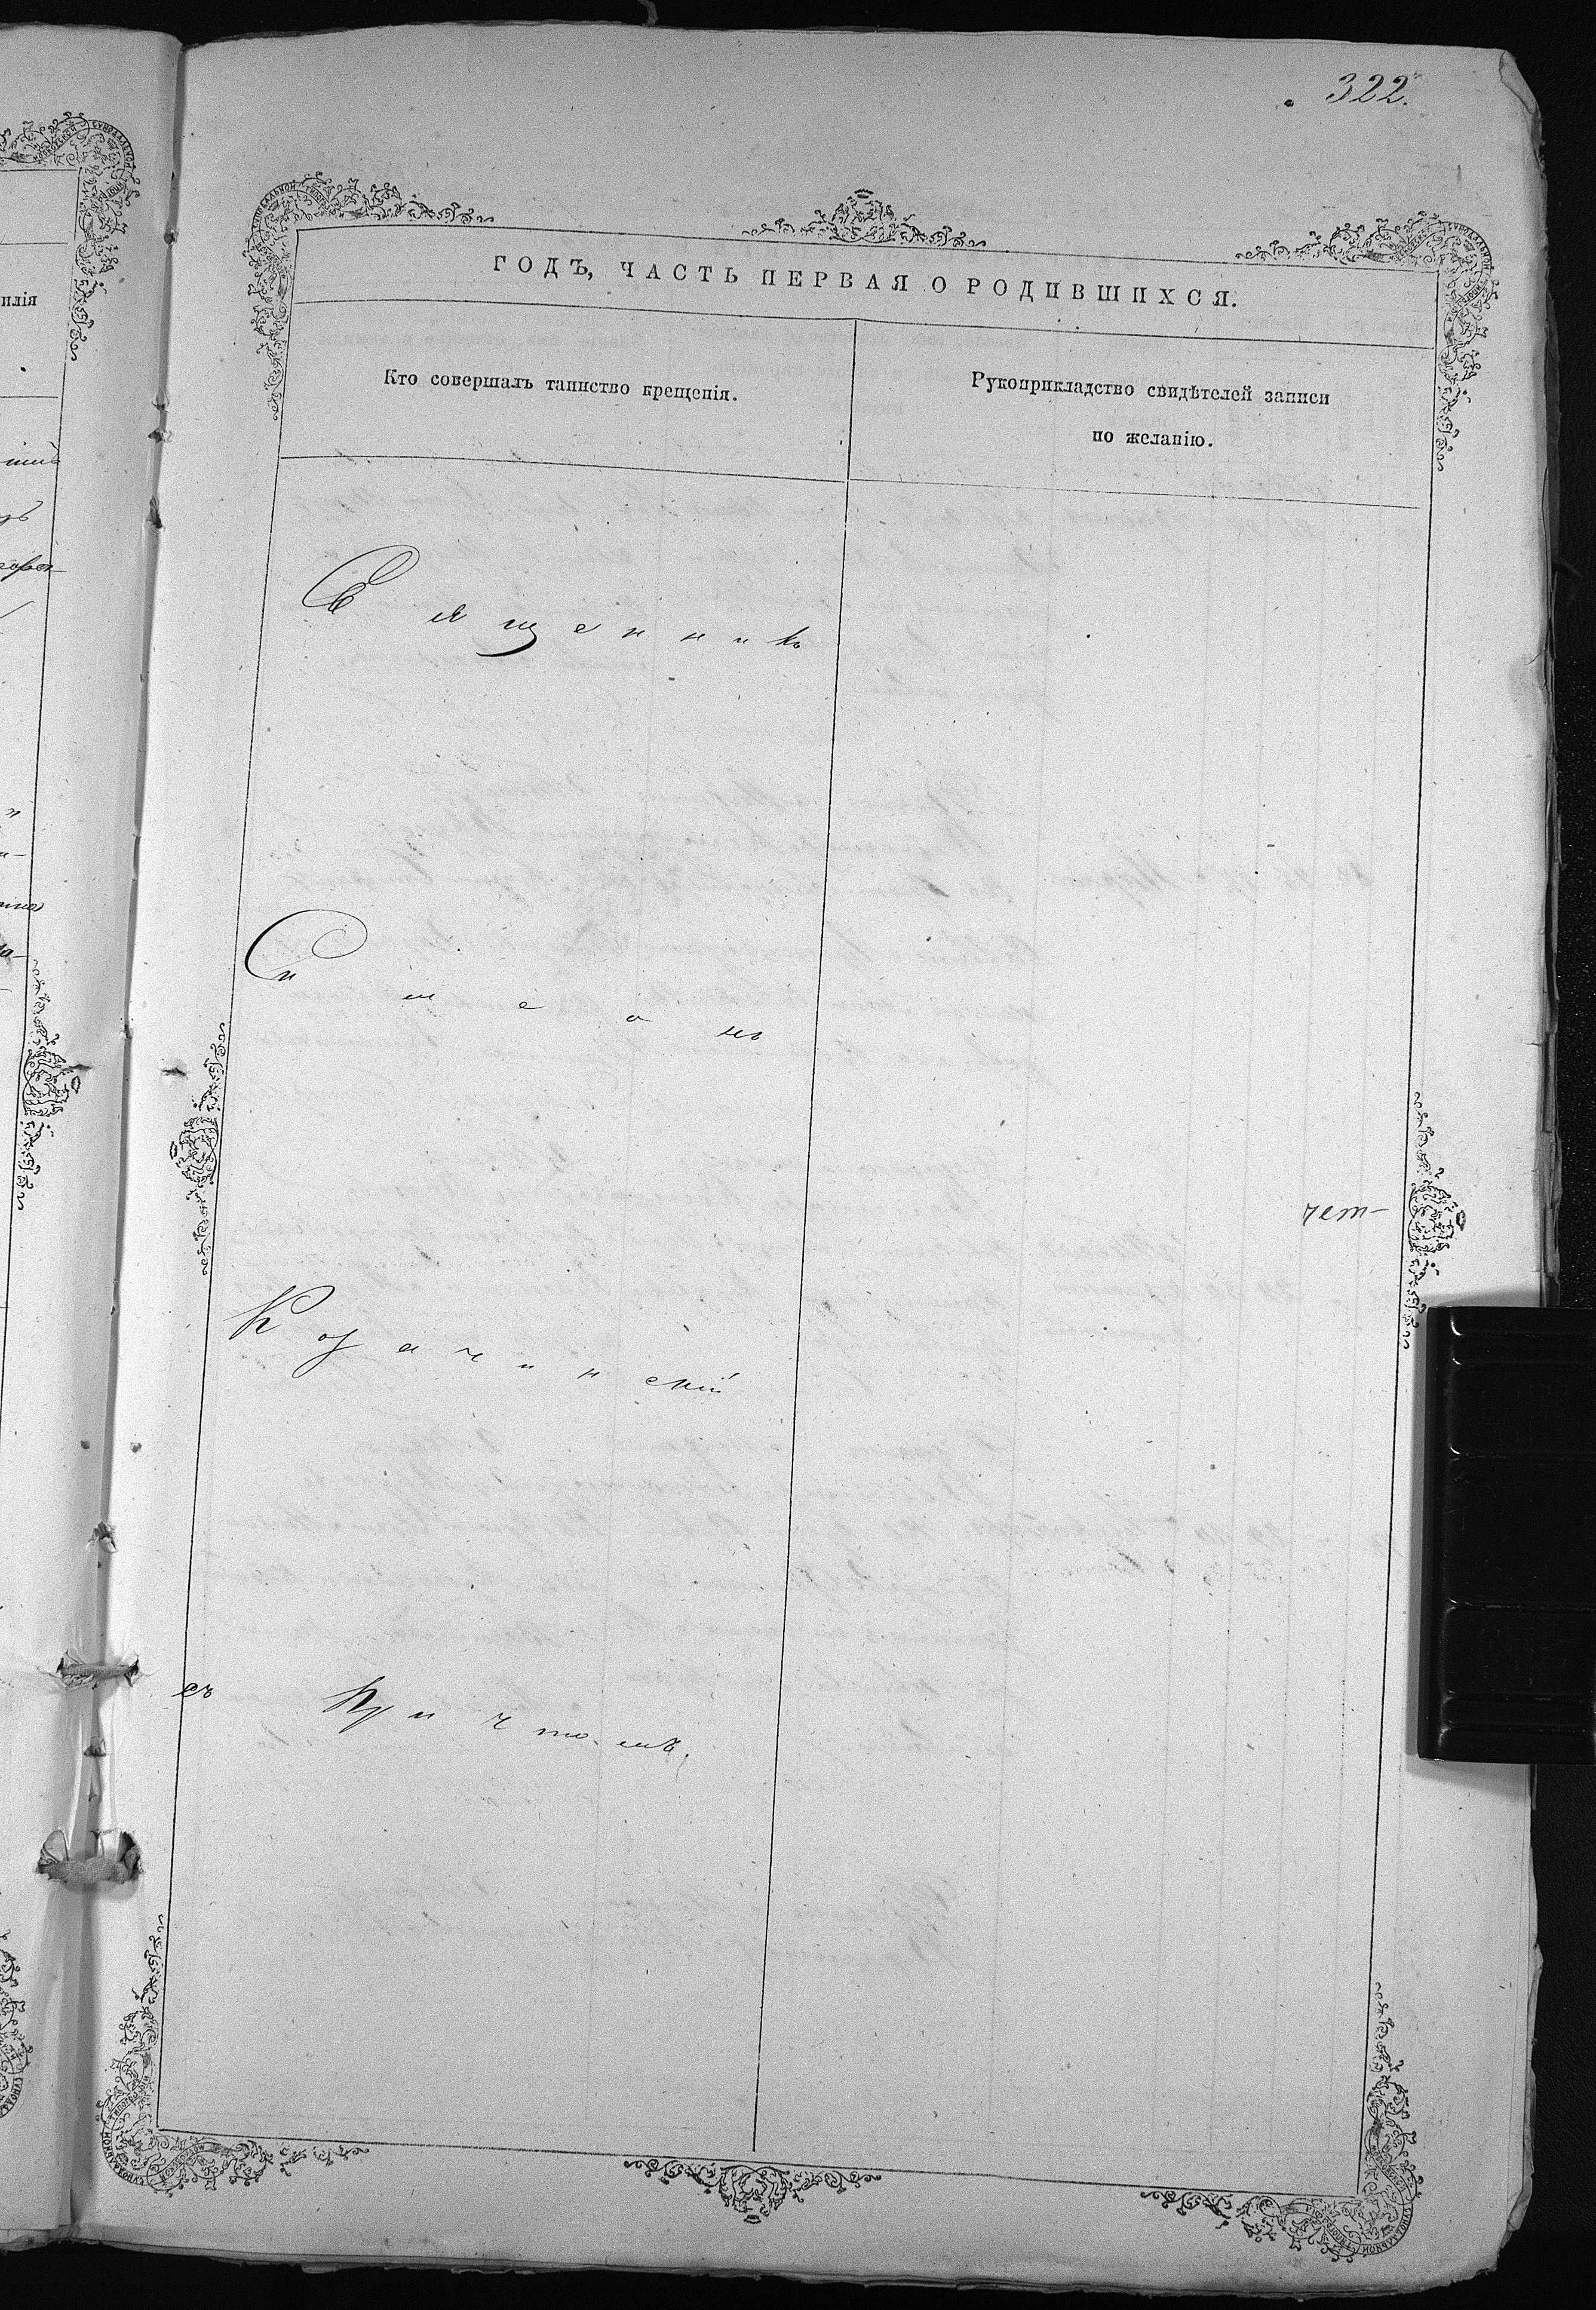 322.
ГОДЪ, ЧАСТЬ ПЕРВАЯ О РОДИВШИХСЯ.
Кто совершалъ таинство крещенія.
Рукоприкладство свидѣтелей записи
по желанію.
Священникъ
Симеонъ
чет-
Козачинскій
съ причтомъ.
илія